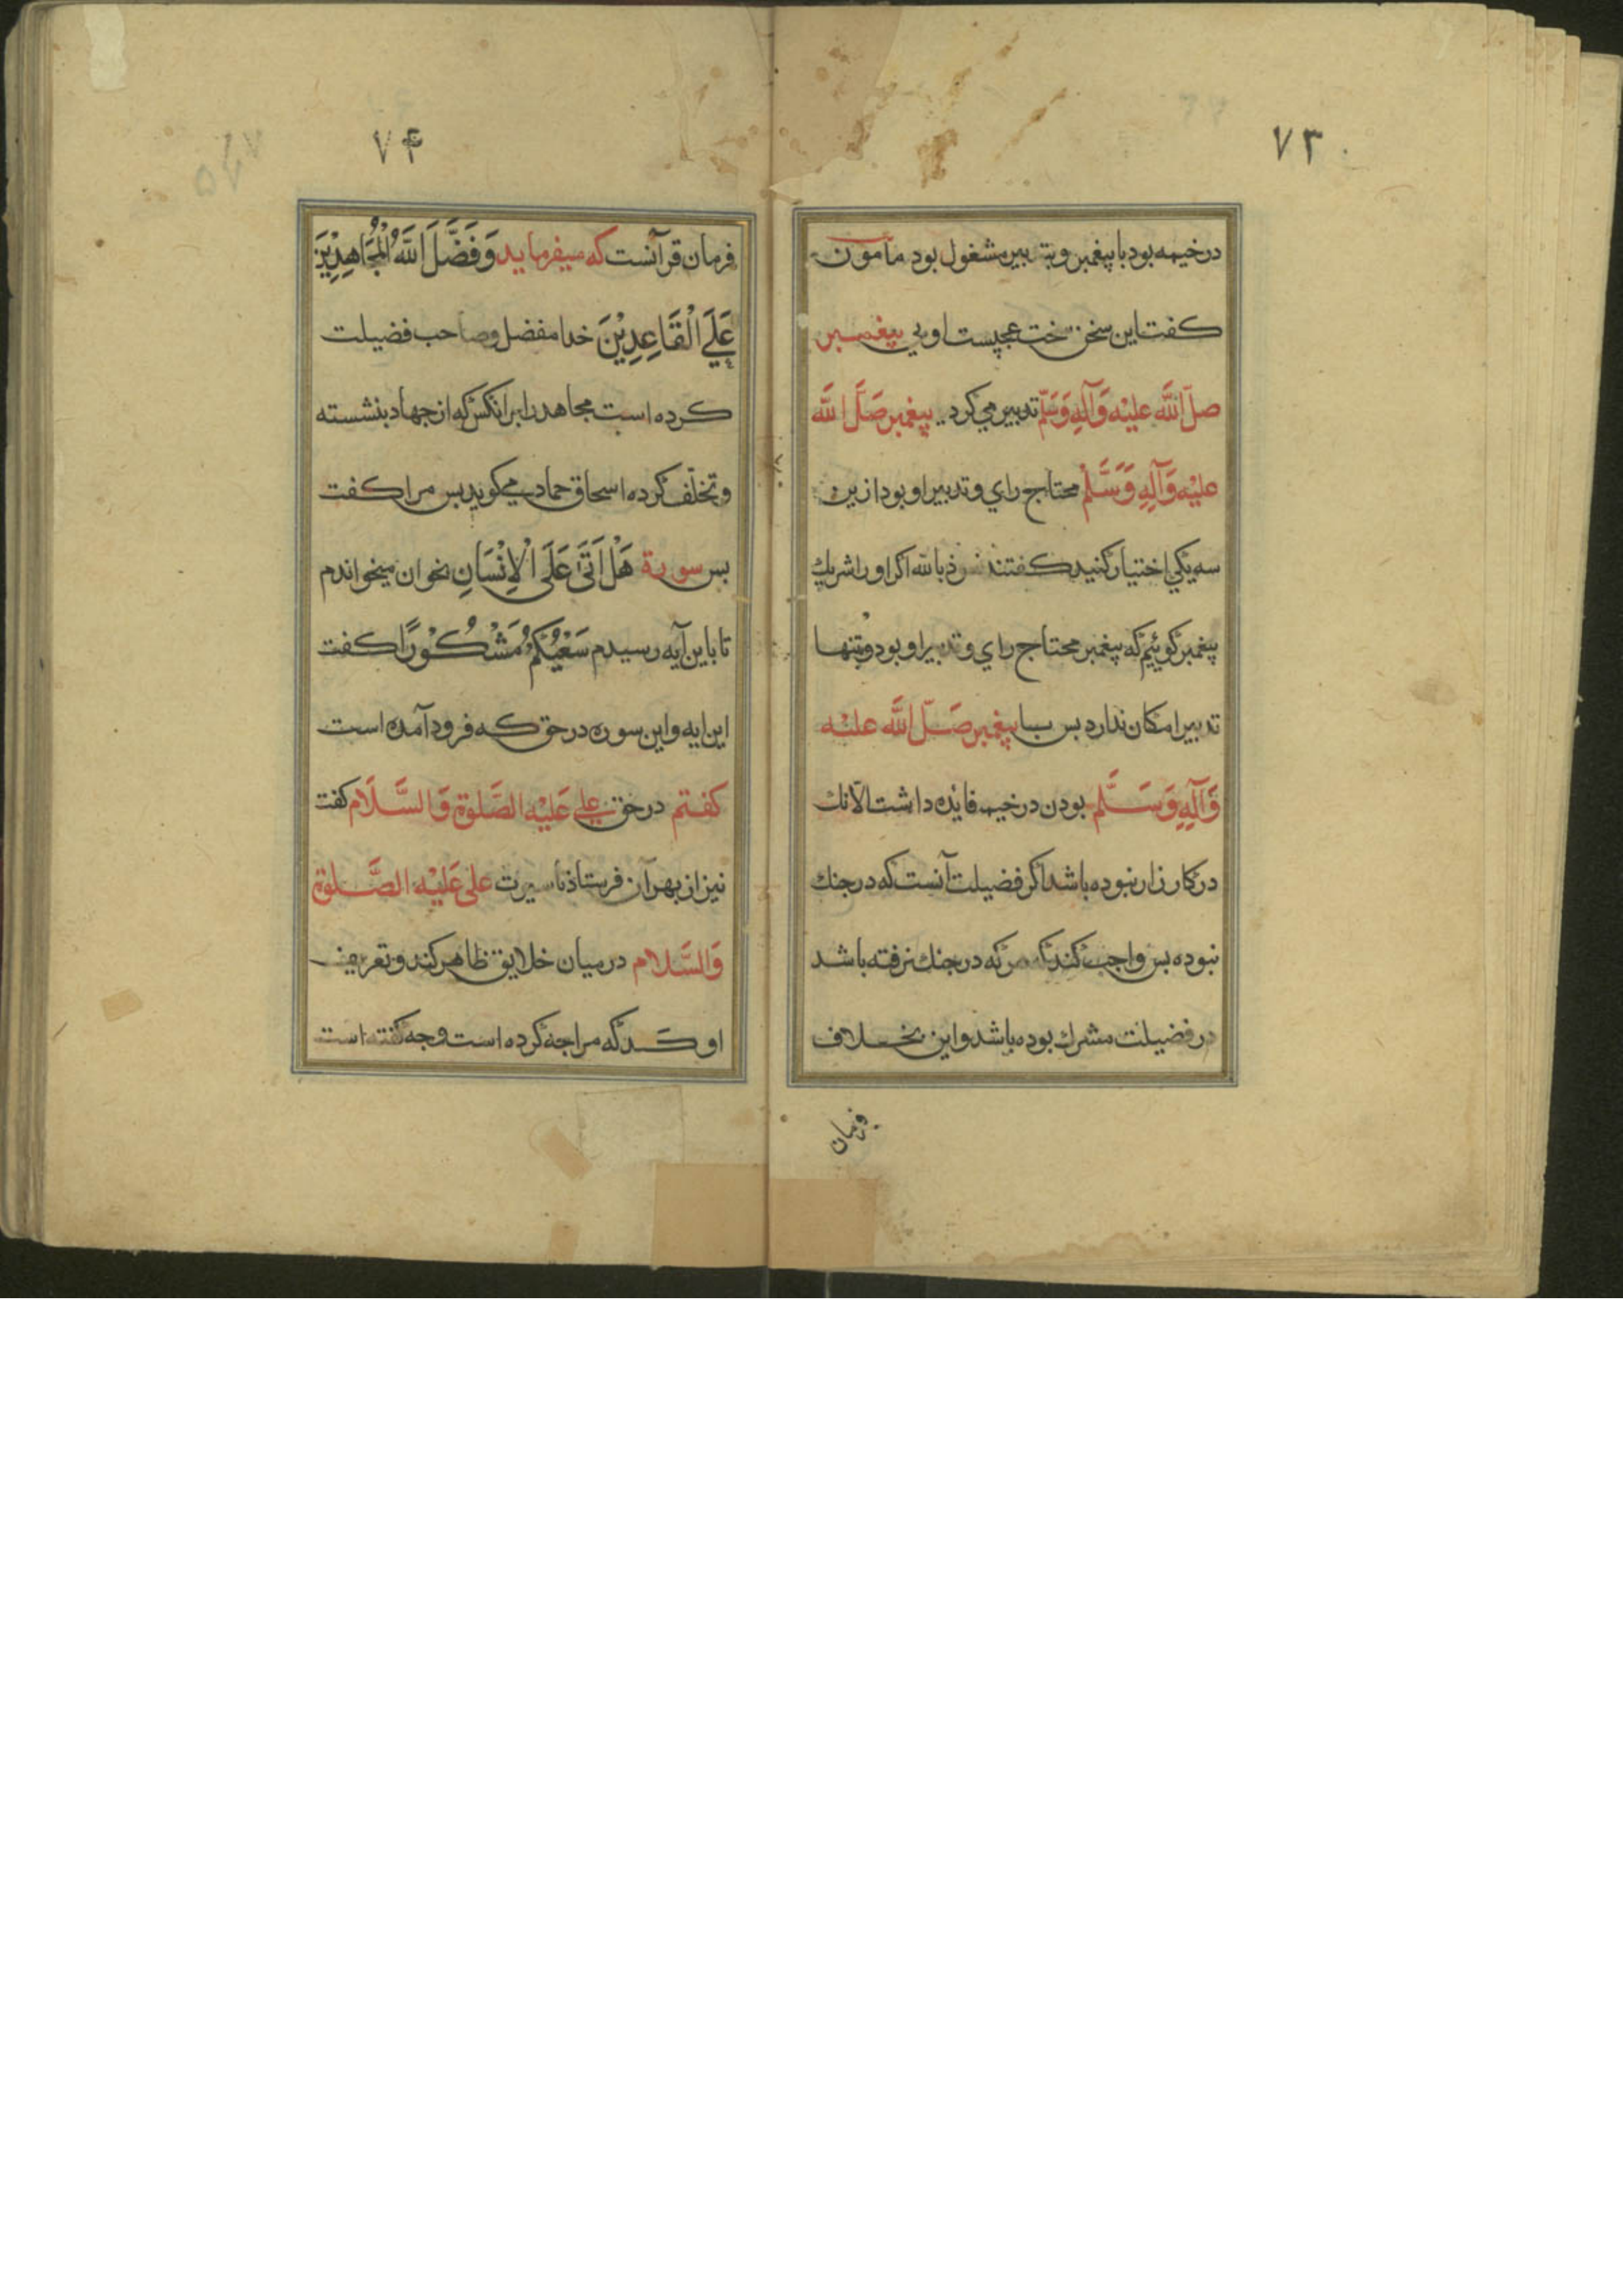 ۷۳
در خیمه بود با پیغمبر و بتدبیر مشغول بود مأمون
کفت این سخن سخت عجبست او بی پیغمبر
صلّ الله علیْه وَآلِهِ وَسَلّم تدبیر می کرد یا پیغمبر صَلَّ الله
علیْه وَآلِهِ وَسَلَّمْ محتاج رای و تدبیر او بود ازین
سه یکی اختیار کنید کفتند بالله اکر او را شریك
پیغمبر کوئیم که پیغمبر محتاج رای و تدبیر او بود و تنها
تدبیر امکان ندارد بس با پیغمبر صَلّ الله علیْه
وَآلِهِ وَسَلَّم بودن در خیمه فایده داشت الا آنك
در کارزار نبوده باشد اکر فضیلت آنست که در جنك
نبوده بس واجب کند که هر که در جنك نرفته باشد
در فضیلت مشرك بوده باشد و این بخلاف
فرمان
۷۴
فرمان قرآنست که میفرماید وَفَضَّلَ اللّهُ الْمُجَاهِدِیْنَ
عَلَی الْقَاعِدِیْنَ خدا مفضل و صاحب فضیلت
کرده است مجاهد را بر انکس که از جهاد بنشسته
و تخلّف کرده اسحاق حماد میکوید بس مرا کفت
بس سورة هَلْ اَتَی عَلَی الْاِنْسَانِ بخوان میخواندم
تا باین آیه رسیدم سَعْیُکُمْ مَشْکُوْرًا کفت
این ایه و این سوره در حق که فرود آمده است
کفتم در حق علی عَلیْهِ الصَّلوة وَالسَّلَام کفت
نیز از بهر آن فرستاد تا سیرت علی عَلَیْهِ الصَّلوة
وَالسَّلام در میان خلایق ظاهر کند و تعریف
او کند که مراجه کرده است و جه کفته است